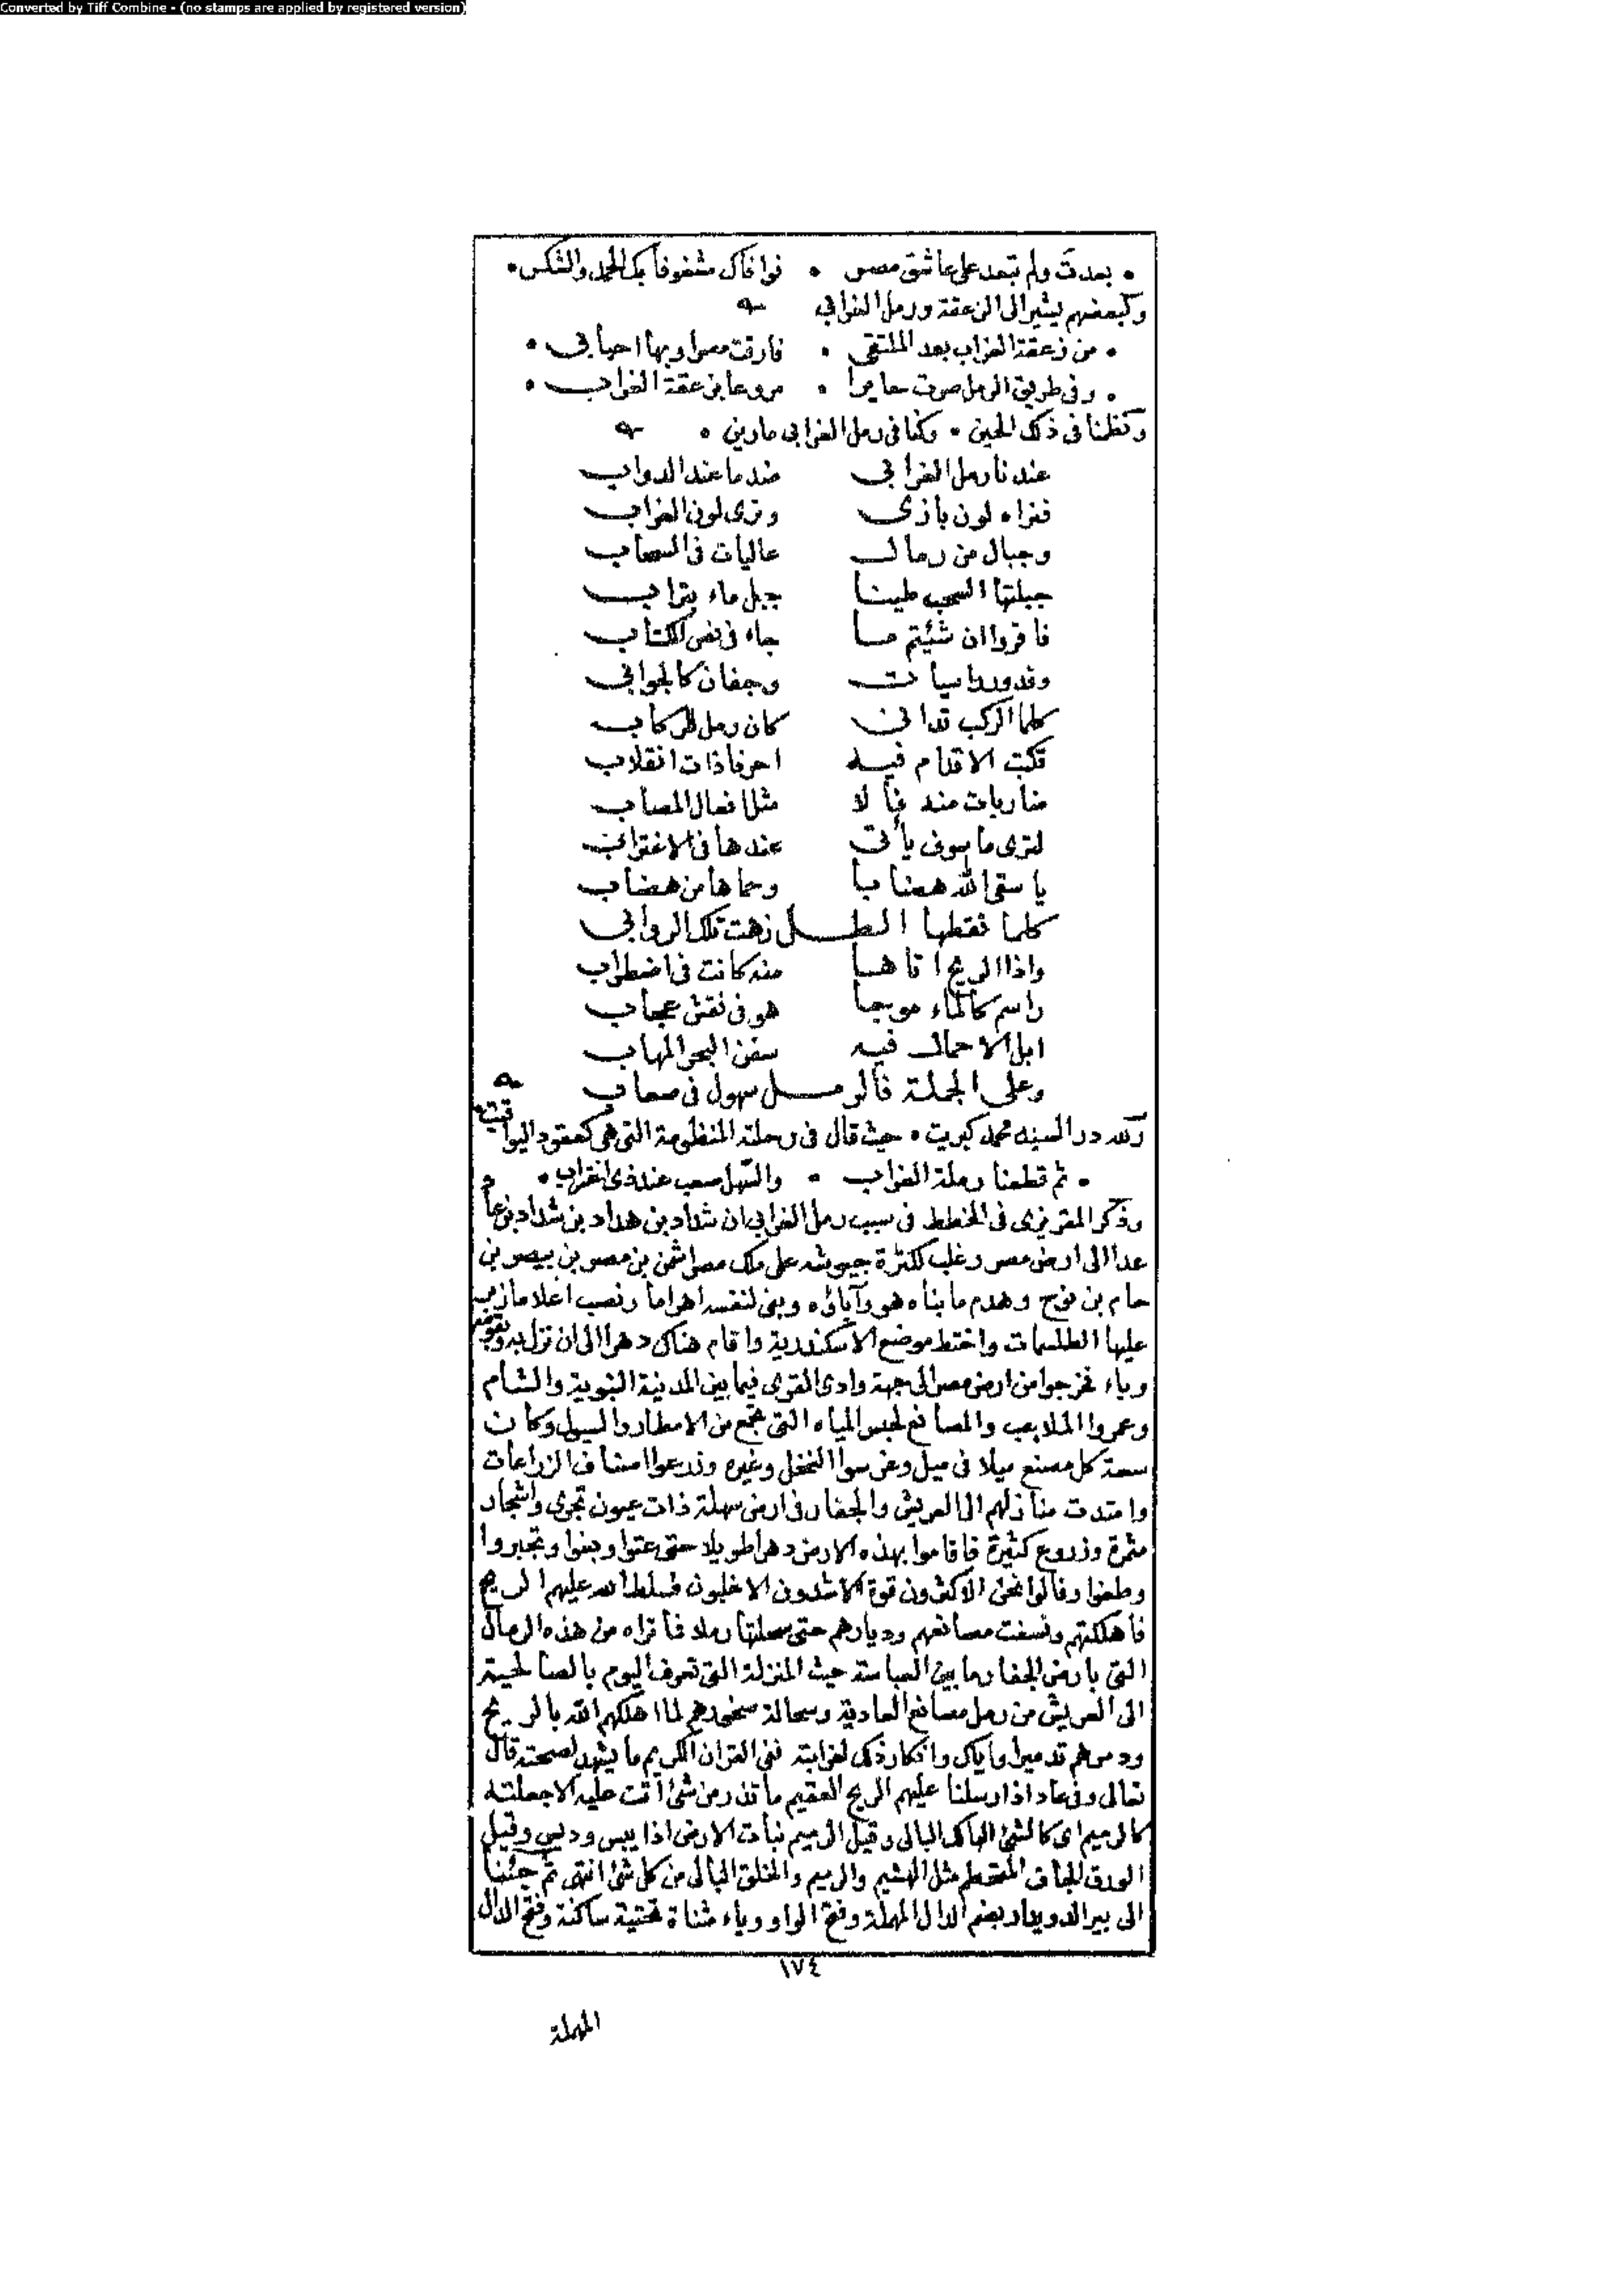 Converted by Tiff Combine - (no stamps are applied by registered version)
• بعدت ولم تبعد على عاشق مصر • فوافاك مشغوفا بك الحمد والشكر •
ولبعضهم يشير الى الزعقة ورمل الغرابي
• من زعقة الغراب بعد الملتقى • فارقت مصرا وبها احبابى •
• وفى طريق الرمل صرت حايرا • مروعا بزعقة الغراب •
ونظمنا فى ذلك الحين • وكنا فى رمل الغرابى مارين •
عندنا رمل الغرابى ضد ما عند الدواب
فنراه لون بازى وترى لون الغراب
وجبال من رمال عاليات فى السحاب
جبلتها السحب طينا جبل ماء بتراب
فاقروا ان شئتم ما جاء فى نص الكتاب
وقدور راسيات وجفان كالجوابى
كلما الركب تدانى كان رمل للركاب
تكتب الاقدام فيه احرفا ذات انقلاب
ضاربات منه فالا مثل افعال المصاب
لترى ما سوف يأتى عندها فى الاغتراب
يا سقى الله هضابا وحماها من هضاب
كلما نقطها الطل زهت تلك الروابى
واذا الريح اتاها منه كانت فى اضطراب
راسم كالماء موجا هو فى نقش عجاب
ابل الاحمال فيه سفن البحر المهاب
وعلى الجملة فالرمل سهول فى صعاب
ولله در السيد محمد كبريت • حيث قال فى رحلته المنظومة التى هى كعقود اليواقيت
• ثم قطعنا رملة الغراب • والسهل صعب عند ذى اغتراب •
وذكر المقريزى فى الخطط فى سبب رمل الغرابى ان شداد بن هداد بن شداد بن عاد
غدا الى ارض مصر وغلب لكثرة جيوشه على ملك مصر اشمن بن مصر بن بيصر بن
حام بن نوح وهدم ما بناه هو وآباؤه وبنى لنفسه اهراما ونصب اعلاما زبر
عليها الطلسمات واختط موضع الاسكندرية واقام هناك دهرا الى ان نزل به وبقومه
وباء فخرجوا من ارض مصر الى جهة وادى القرى فيما بين المدينة النبوية والشام
وعمروا الملاعب والمصانع لحبس المياه التى تجتمع من الامطار والسيول وكانت
سعة كل مصنع ميلا فى ميل وغرسوا النخل وغيره وزرعوا اصناف الزراعات
وامتدت منازلهم الى العريش والجفار فى ارض سهلة ذات عيون تجرى واشجار
مثمرة وزروع كثيرة فاقاموا بهذه الارض دهرا طويلا حتى عتوا وبغوا وتجبروا
وطغوا وقالوا نحن الاكثرون قوة الاشدون الاغلبون فسلط الله عليهم الريح
فاهلكتهم ونسفت مصانعهم وديارهم حتى سحلتها رملا فما تراه من هذه الرمال
التى بارض الجفار ما بين العباسة حيث المنزلة التى تعرف اليوم بالصالحية
الى العريش من رمل مصانع العادية وسحالة صخورهم لما اهلكهم الله بالريح
ودمرهم تدميرا واياك وانكار ذلك لغرابته ففى القران الكريم ما يشهد لصحته قال
تعالى وفى عاد اذ ارسلنا عليهم الريح العقيم ما تذر من شئ أتت عليه الا جعلته
كالرميم اى كالشئ الهالك البالى وقيل الرميم نبات الارض اذا يبس وديس وقيل
الورق الجاف المتحطم مثل الهشيم والرميم والخلق البالى من كل شئ انتهى ثم جئنا
الى بير الدويدار بضم الدال المهملة وفتح الواو وياء مثناة تحتية ساكنة وفتح الدال
١٧٤
المهملة